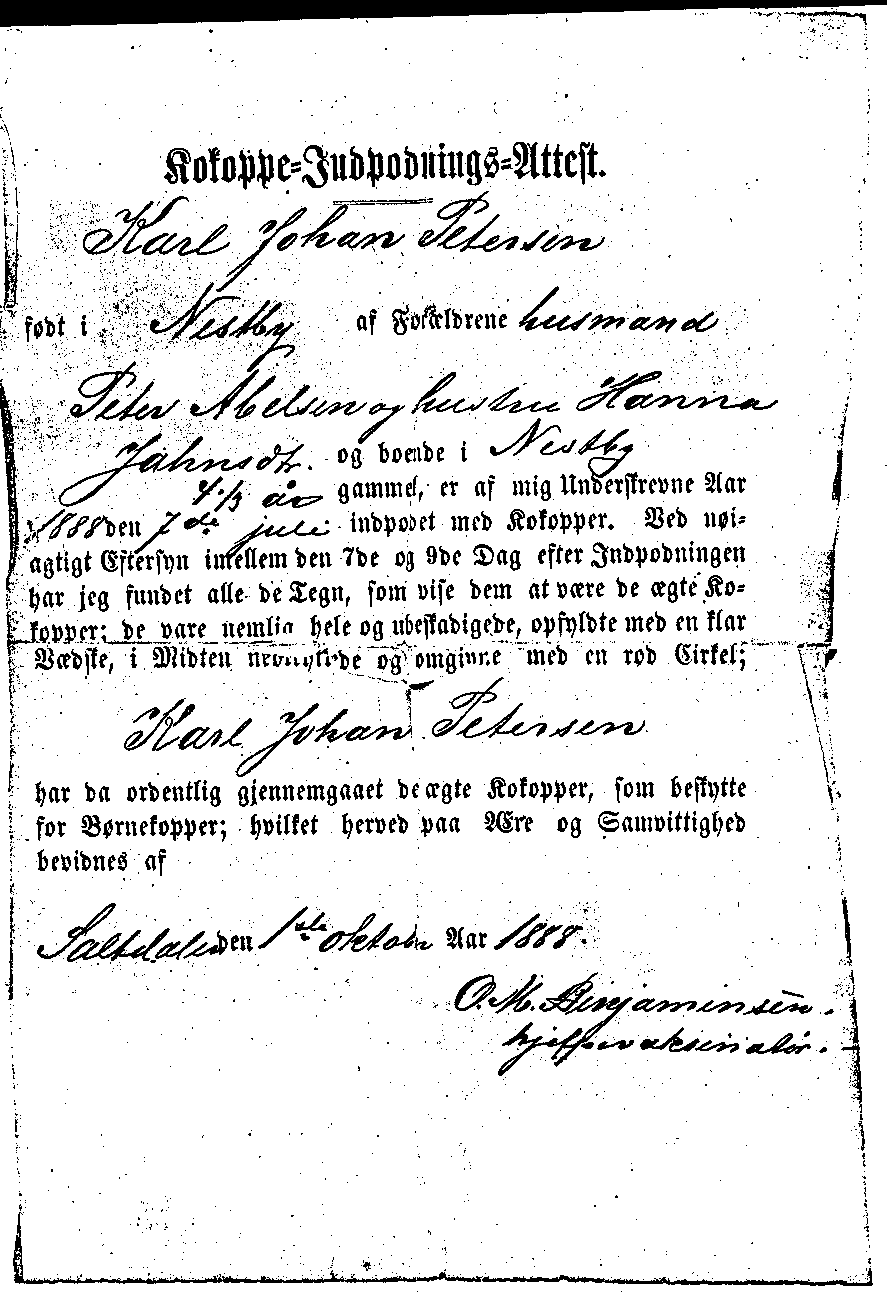 Kokoppe-Indpodnings-Attest.
Karl Johan Petersen
født i Nestby af Forældrene husmand
Peter Abelsen og hustru Hanna
Jahnsdtr. og boende i Nestby
4 1/3 år gammel, er af mig Underskrevne Aar
1888 den 7de juli indpodet med Kokopper. Ved nøi-
agtigt Eftersyn imellem den 7de og 9de Dag efter Indpodningen
har jeg fundet alle de Tegn, som vise dem at være de ægte Ko-
kopper; de vare nemlig hele og ubeskadigede, opfyldte med en klar
Vædske, i Midten nedtrykte og omgivne med en rød Cirkel;
Karl Johan Petersen
har da ordentlig gjennemgaaet de ægte Kokopper, som beskytte
for Børnekopper; hvilket herved paa Ære og Samvittighed
bevidnes af
Saltdalen den 1ste oktober Aar 1888.
O. M. Benjaminsen.
hjelpevaksinatør.